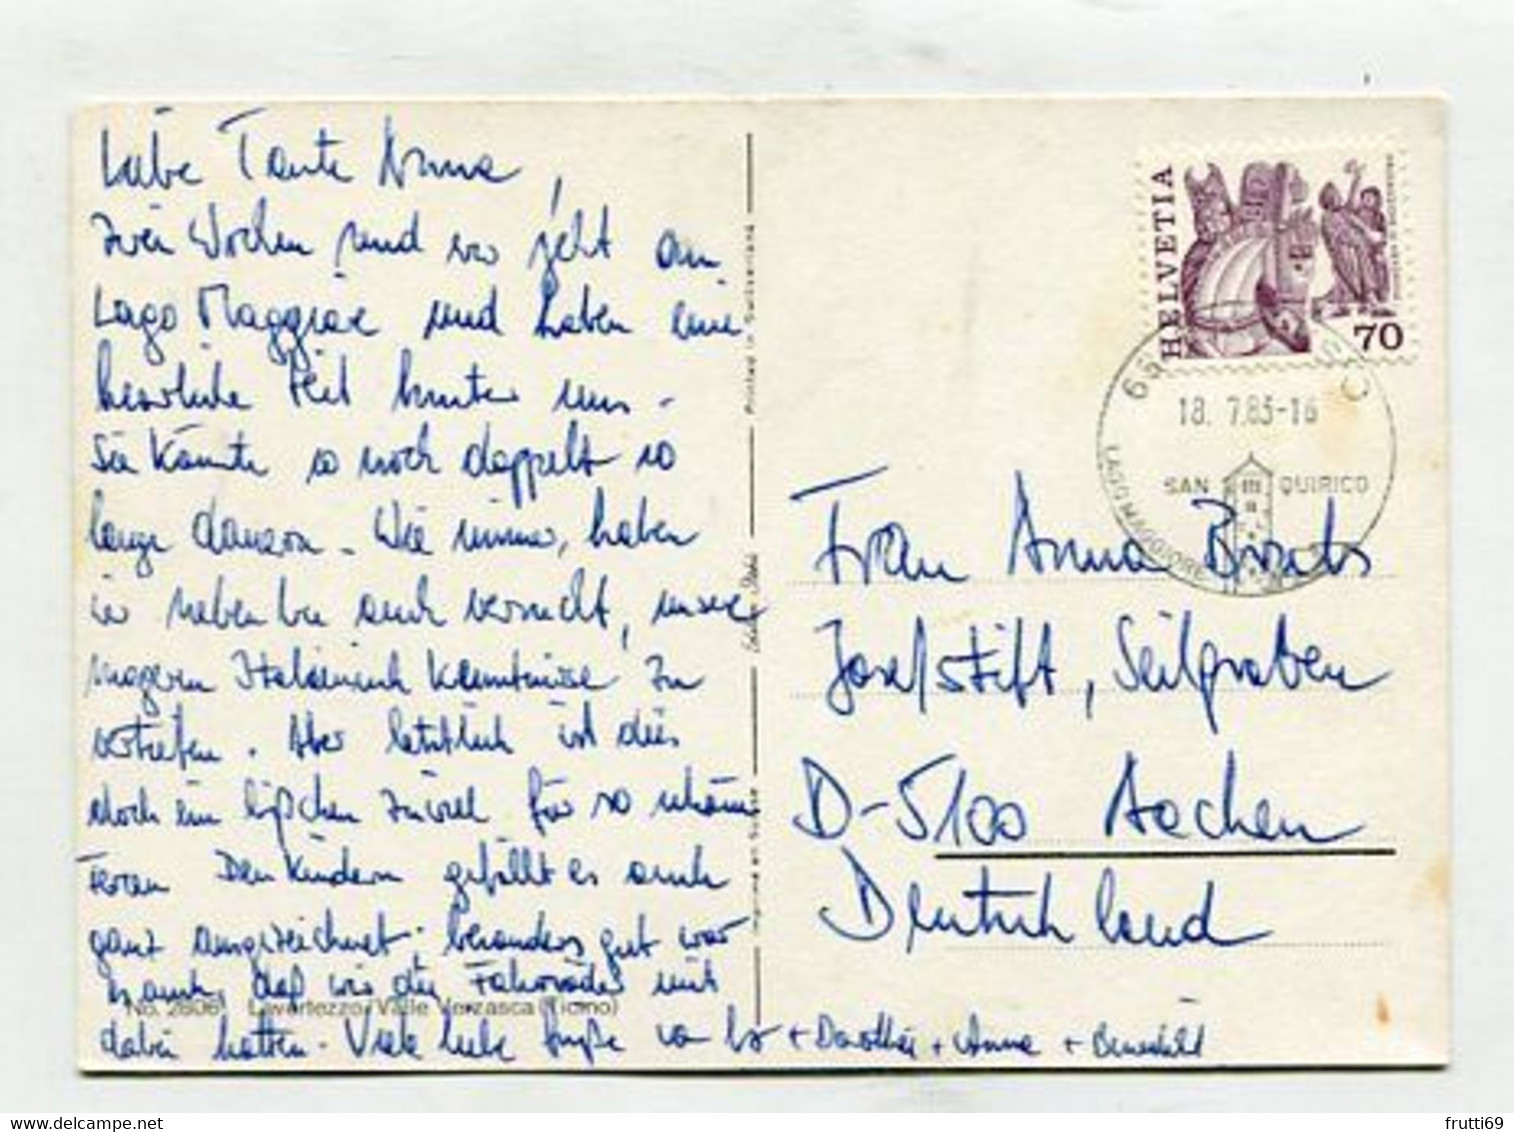 Liebe Tante Anna,
zwei Wochen sind wir jetzt am
Lago Maggiore und haben eine
herrliche Zeit hinter uns -
sie könnte so noch doppelt so
lange dauern. Wie immer, haben
wir nebenbei auch versucht, unsere
mageren Italienisch Kenntnisse zu
vertiefen. Aber letztlich ist dies
doch ein bißchen zuviel für so schöne
Ferien. Den Kindern gefällt es auch
ganz ausgezeichnet; besonders gut war
es auch, daß wir die Fahrräder mit
dabei hatten. Viele liebe Grüße von + Dorothée + Anna + Benedikt
No. 2606 Lavertezzo/Valle Verzasca (Ticino)
Printed in Switzerland
HELVETIA
70
18. 7.83-16
SAN QUIRICO
LAGO MAGGIORE
Frau Anna
Josefstift, Seilgraben
D-5100 Aachen
Deutschland
frutti69